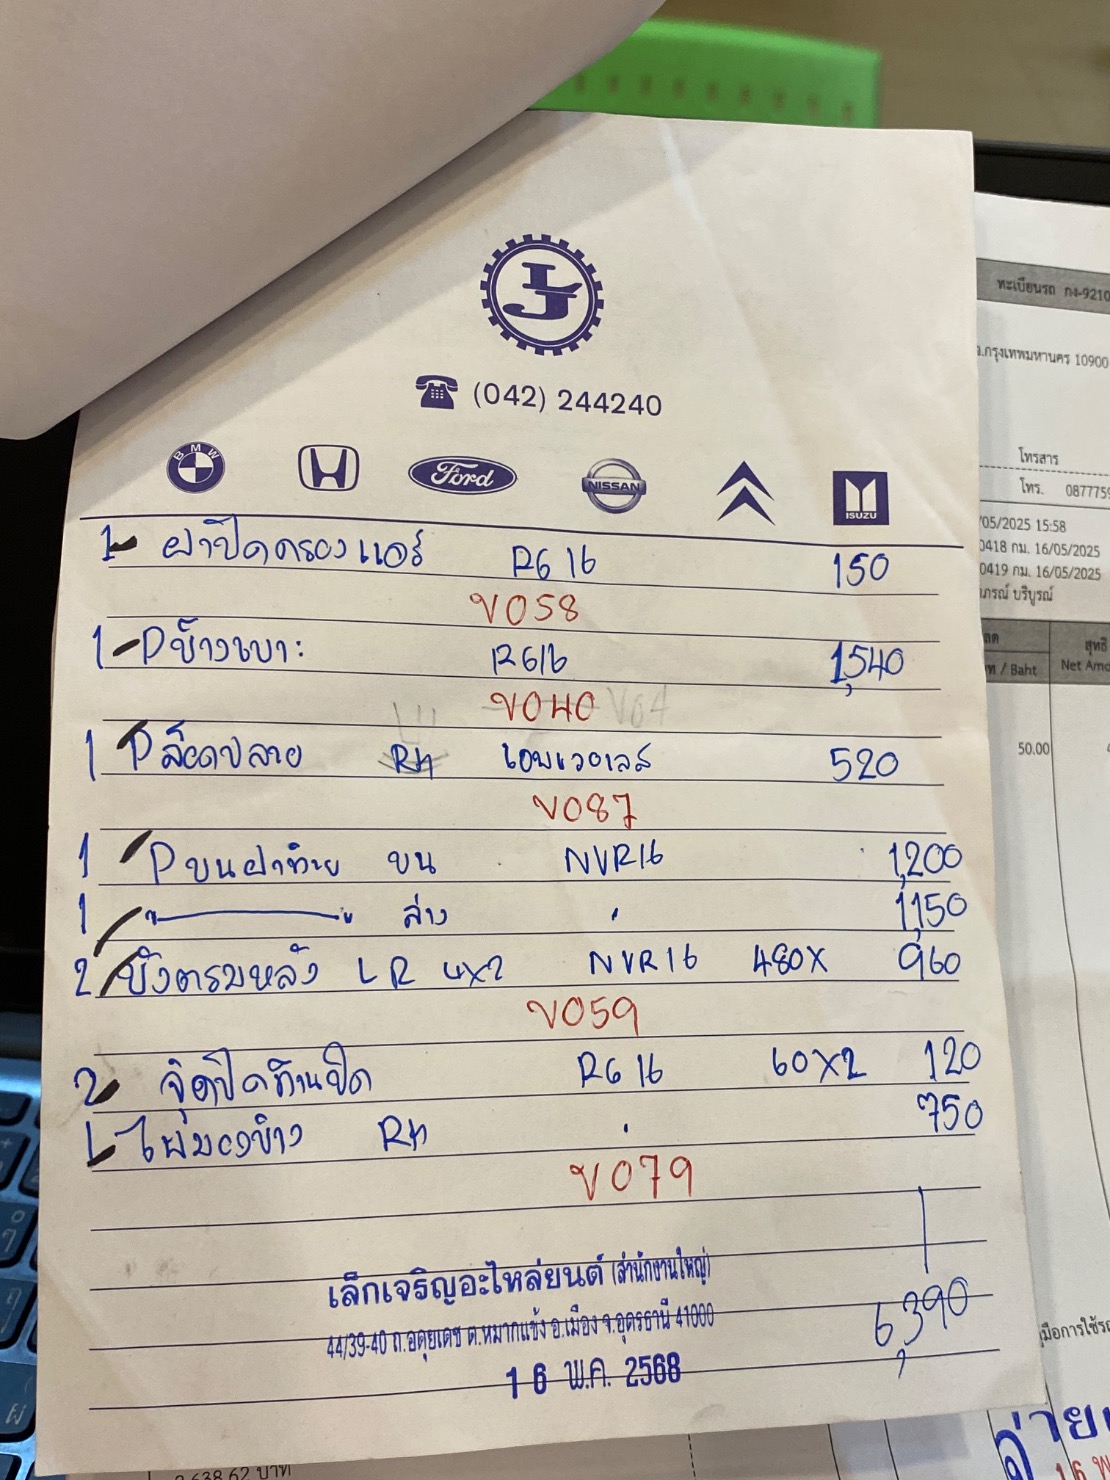 LJ
(042) 244240
BMW
H
Ford
NISSAN
ISUZU
1 ฝาปิดกรองแอร์ RG 16 150
V058
1 Pข้างเบาะ RG16 1,540
V040 V04
1 P ล๊อคปลาย RH เอนเวอเลส 520
V087
1 Pบนฝาท้าย บน NVR16 1,200
1 " " ล่าง " 1,150
2 บังตรบหลัง LR 4x2 NVR16 480X 960
V059
2 จุ๊ดปิดกันปิด RG 16 60X2 120
1 ไฟมองข้าง RH " 750
V079
6,390
เล็กเจริญอะไหล่ยนต์ (สำนักงานใหญ่)
44/39-40 ถ.อดุยเดช ต.หมากแข้ง อ.เมือง จ.อุดรธานี 41000
16 พ.ค. 2568
ทะเบียนรถ กง-9210
จ.กรุงเทพมหานคร 10900
โทรสาร
โทร. 0877759
/05/2025 15:58
0418 กม. 16/05/2025
0419 กม. 16/05/2025
ภรณ์ บริบูรณ์
ลด สุทธิ
/ Baht Net Amo
50.00
มือการใช้รถ
จ่าย
16 พ
2,638.62 บาท